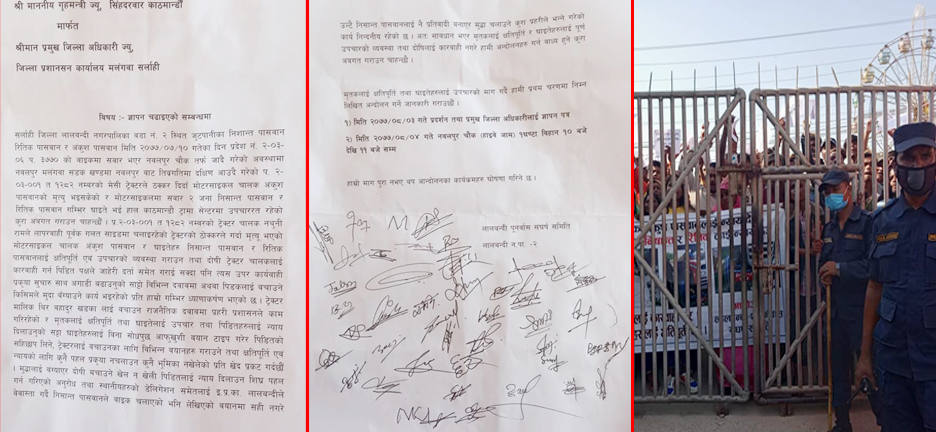 श्री माननीय गृहमन्त्री ज्यू, सिंहदरवार काठमाण्डौं
मार्फत
श्रीमान प्रमुख जिल्ला अधिकारी ज्यु,
जिल्ला प्रशानसन कार्यालय मलंगवा सर्लाही
विषय :- ज्ञापन चढाइएको सम्बन्धमा
सर्लाही जिल्ला लालबन्दी नगरपालिका वडा नं. २ स्थित जुटपानीका निशान्त पासवान
रितिक पासवान र अंकुश पासवान मिति २०७७/०७/१० गतेका दिन प्रदेश नं. २-०३-
०६ प. ३७७० को वाइकमा सवार भएर नवलपुर चौक तर्फ जादै गरेको अवस्थामा
नवलपुर मलंगवा सडक खण्डमा नवलपुर वाट तिव्रगतिमा दक्षिण आउदै गरेको प. २-
०३-००१ त १२८२ नम्वरको मेसी ट्रेक्टरले ठक्कर दिदाँ मोटरसाइकल चालक अंकुश
पासवानको मृत्यु भइसकेको र मोटरसाइकलमा सवार २ जना निसान्त पासवान र
रितिक पासवान गम्भिर घाइते भई हाल काठमाण्डौ ट्रामा सेन्टरमा उपचाररत रहेको
कुरा अवगत गराउन चाहन्छौ । प्र.२-०३-००१ त १२८२ नम्वरको ट्रेक्टर चालक नथुनी
रामले लापरवाही पुर्वक गलत साइडमा चलाइरहेको ट्रेक्टरको ठोक्करले गर्दा मृत्यु भएको
मोटरसाइकल चालक अंकुश पासवान र घाइतेहरु निसान्त पासवान र रितिक
पासवानलाई क्षतिपुर्ति एवं उपचारको व्यवस्था गराउन तथा दोषी ट्रेक्टर चालकलाई
कारवाही गर्न पिडित पक्षले जाहेरी दर्ता समेत गराई सक्दा पनि त्यस उपर कार्यवाही
प्रक्रया सुचारु साथ अगाडी बढाउनुको साट्टो विभिन्न दवावमा अथवा पिडकलाई बचाउने
किसिमले मुद्दा वंग्याउने कार्य भइरहेको प्रति हाम्रो गम्भिर ध्यानाकर्षण भएको छ । ट्रेक्टर
मालिक विर बहादुर खडका लाई बचाउन राजनैतिक दवावमा प्रहरी प्रशासनले काम
गरिरहेको र मृतकलाई क्षतिपुर्ति तथा घाइतेलाई उपचार तथा पिडितहरुलाई न्याय
दिलाउनुको सट्टा घाइतेहरुलाई विना सोधपुछ आफुखुशी वयान टाइप गरेर पिडितको
सहिछाप लिने, ट्रेक्टरलाई बचाउनका लागि विभिन्न वयानहरु गराउने तथा क्षतिपुर्ति एवं
न्यायको लागि कुनै पहल प्रकृया नचलाउन कुनै भूमिका नखेलेको प्रति खेद प्रकट गर्दछौं
। मुद्धालाई वंग्याएर दोषी बचाउने खेल न खेली पिडितलाई न्याय दिलाउन शिघ्र पहल
गर्न गरिएको अनुरोध तथा स्थानीयहरुको डेलिगेशन समेतलाई इ.प्र.का. लालबन्दीले
बेवास्ता गर्दै निसान्त पासवानले बाइक चलाएको भनि लेखिएको वयानमा सही नगरे
उल्टै निसान्त पासवानलाई नै प्रतिवादी बनाएर मुद्धा चलाउने कुरा प्रहरीले भन्ने गरेको
कार्य निन्दनीय रहेको छ । अतः सावधान भएर मृतकलाई क्षतिपुर्ति र घाइतेहरुलाई पूर्ण
उपचारको व्यवस्था तथा दोषिलाई कारवाही नगरे हामी आन्दोलनहरु गर्न वाध्य हुने कुरा
अवगत गराउन चाहन्छौ ।
मृतकलाई क्षतिपुर्ति तथा घाइतेहरुलाई उपचारको माग गर्दै हामी प्रथम चरणमा निम्न
लिखित अन्दोलन गर्ने जानकारी गराउछौं ।
१) मिति २०७७/०८/०३ गते प्रदर्शन तथा प्रमुख जिल्ला अधिकारीलाई ज्ञापन पत्र
२) मिति २०७७/०८/०४ गते नवलपुर चौक (हाइवे जाम) १घण्टा बिहान १० बजे
देखि ११ बजे सम्म
हाम्रो माग पुरा नभए थप आन्दोलनका कार्यक्रमहरु घोषणा गरिने छ ।
लालबन्दी पुनर्वास संघर्ष समिति
लालबन्दी न.पा. -२